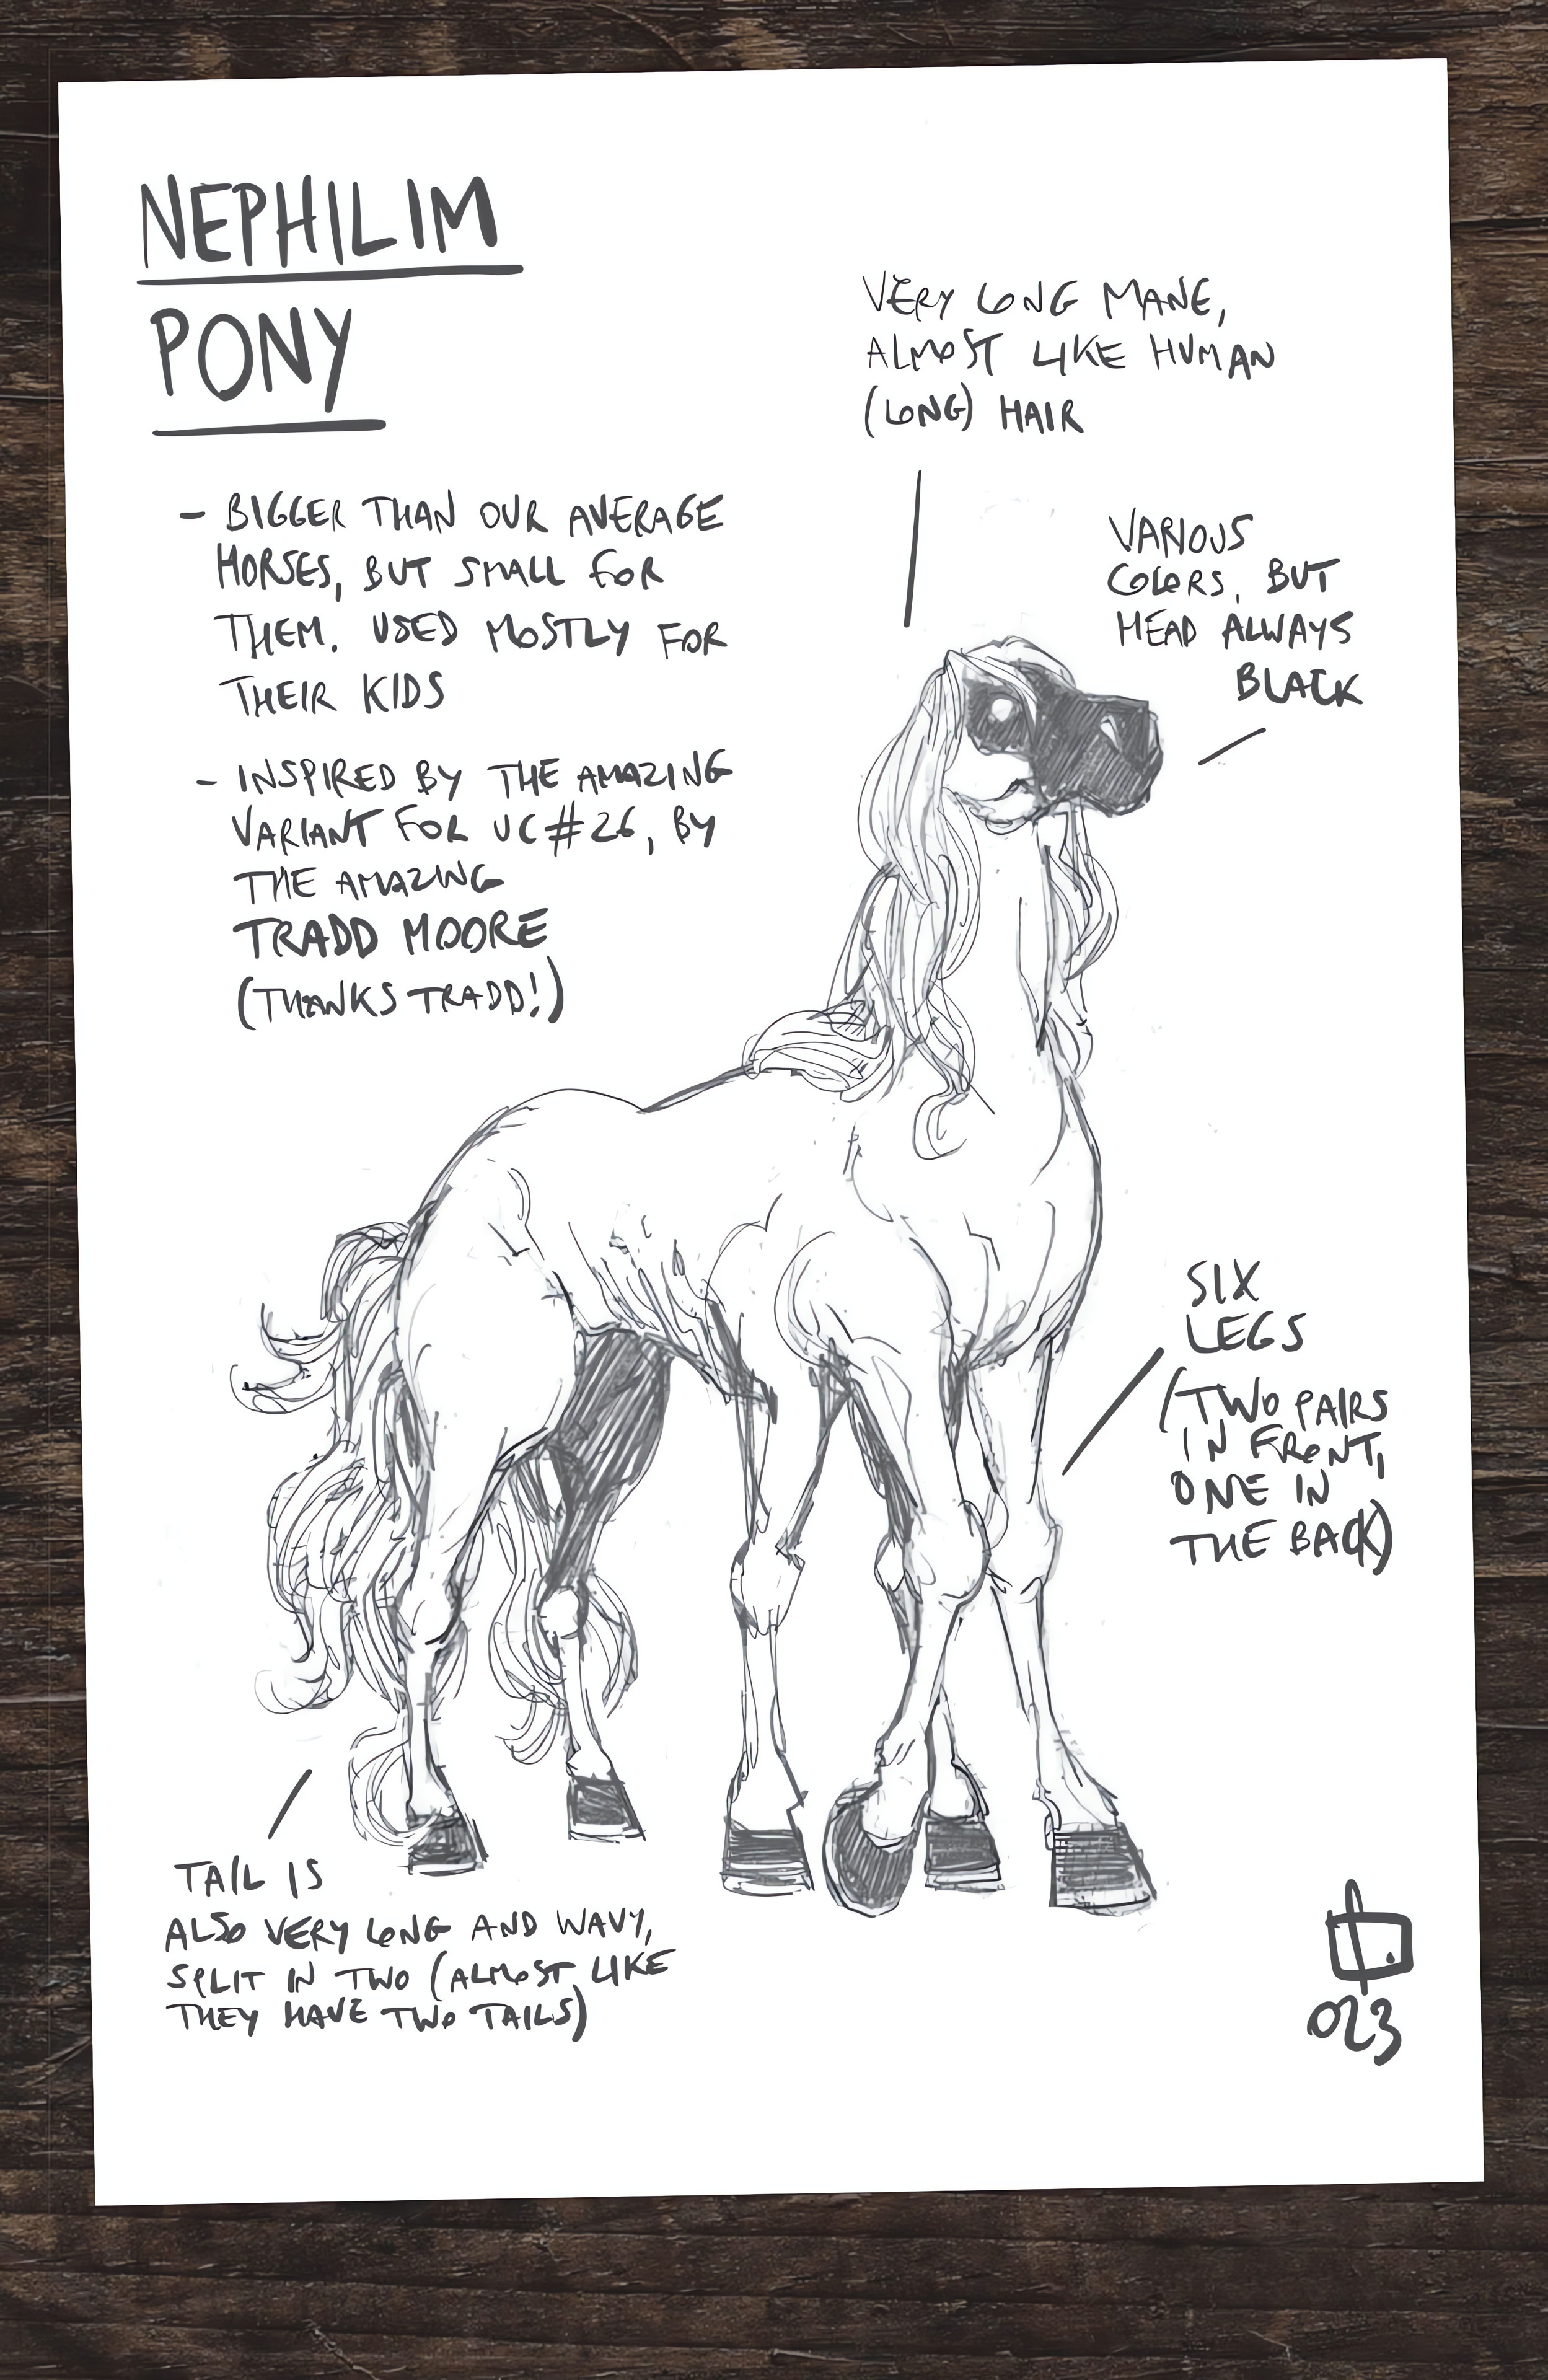 NEPHILIM
PONY
- BIGGER THAN OUR AVERAGE
HORSES, BUT SMALL FOR
THEM. USED MOSTLY FOR
THEIR KIDS
- INSPIRED BY THE AMAZING
VARIANT FOR UC #26, BY
THE AMAZING
TRADD MOORE
(THANKS TRADD!)
VERY LONG MANE,
ALMOST LIKE HUMAN
(LONG) HAIR
VARIOUS
COLORS, BUT
HEAD ALWAYS
BLACK
SIX
LEGS
(TWO PAIRS
IN FRONT,
ONE IN
THE BACK)
TAIL IS
ALSO VERY LONG AND WAVY,
SPLIT IN TWO (ALMOST LIKE
THEY HAVE TWO TAILS)
023